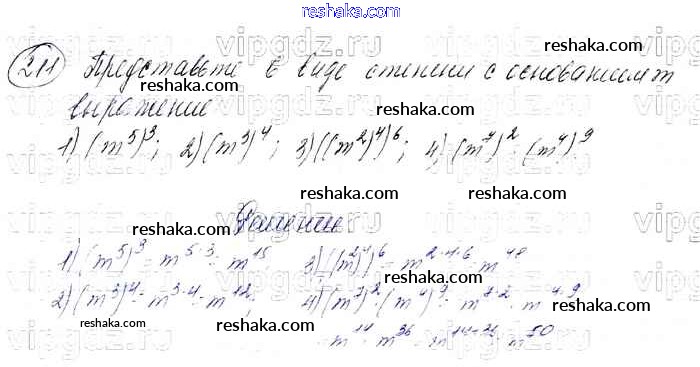 reshaka.com
211 Представьте в виде степени с основанием m
reshaka.com
выражение
1) (m^5)^3; 2) (m^3)^4; 3) ((m^2)^4)^6; 4) (m^7)^2 · (m^4)^9
reshaka.com reshaka.com
Решение
reshaka.com reshaka.com
1) (m^5)^3 = m^{5·3} = m^{15}; 3) ((m^2)^4)^6 = m^{2·4·6} = m^{48}
2) (m^3)^4 = m^{3·4} = m^{12}; 4) (m^7)^2 · (m^4)^9 = m^{7·2} · m^{4·9}
reshaka.com reshaka.com
= m^{14} · m^{36} = m^{14+36} = m^{50}
reshaka.com
vipgdz.ru